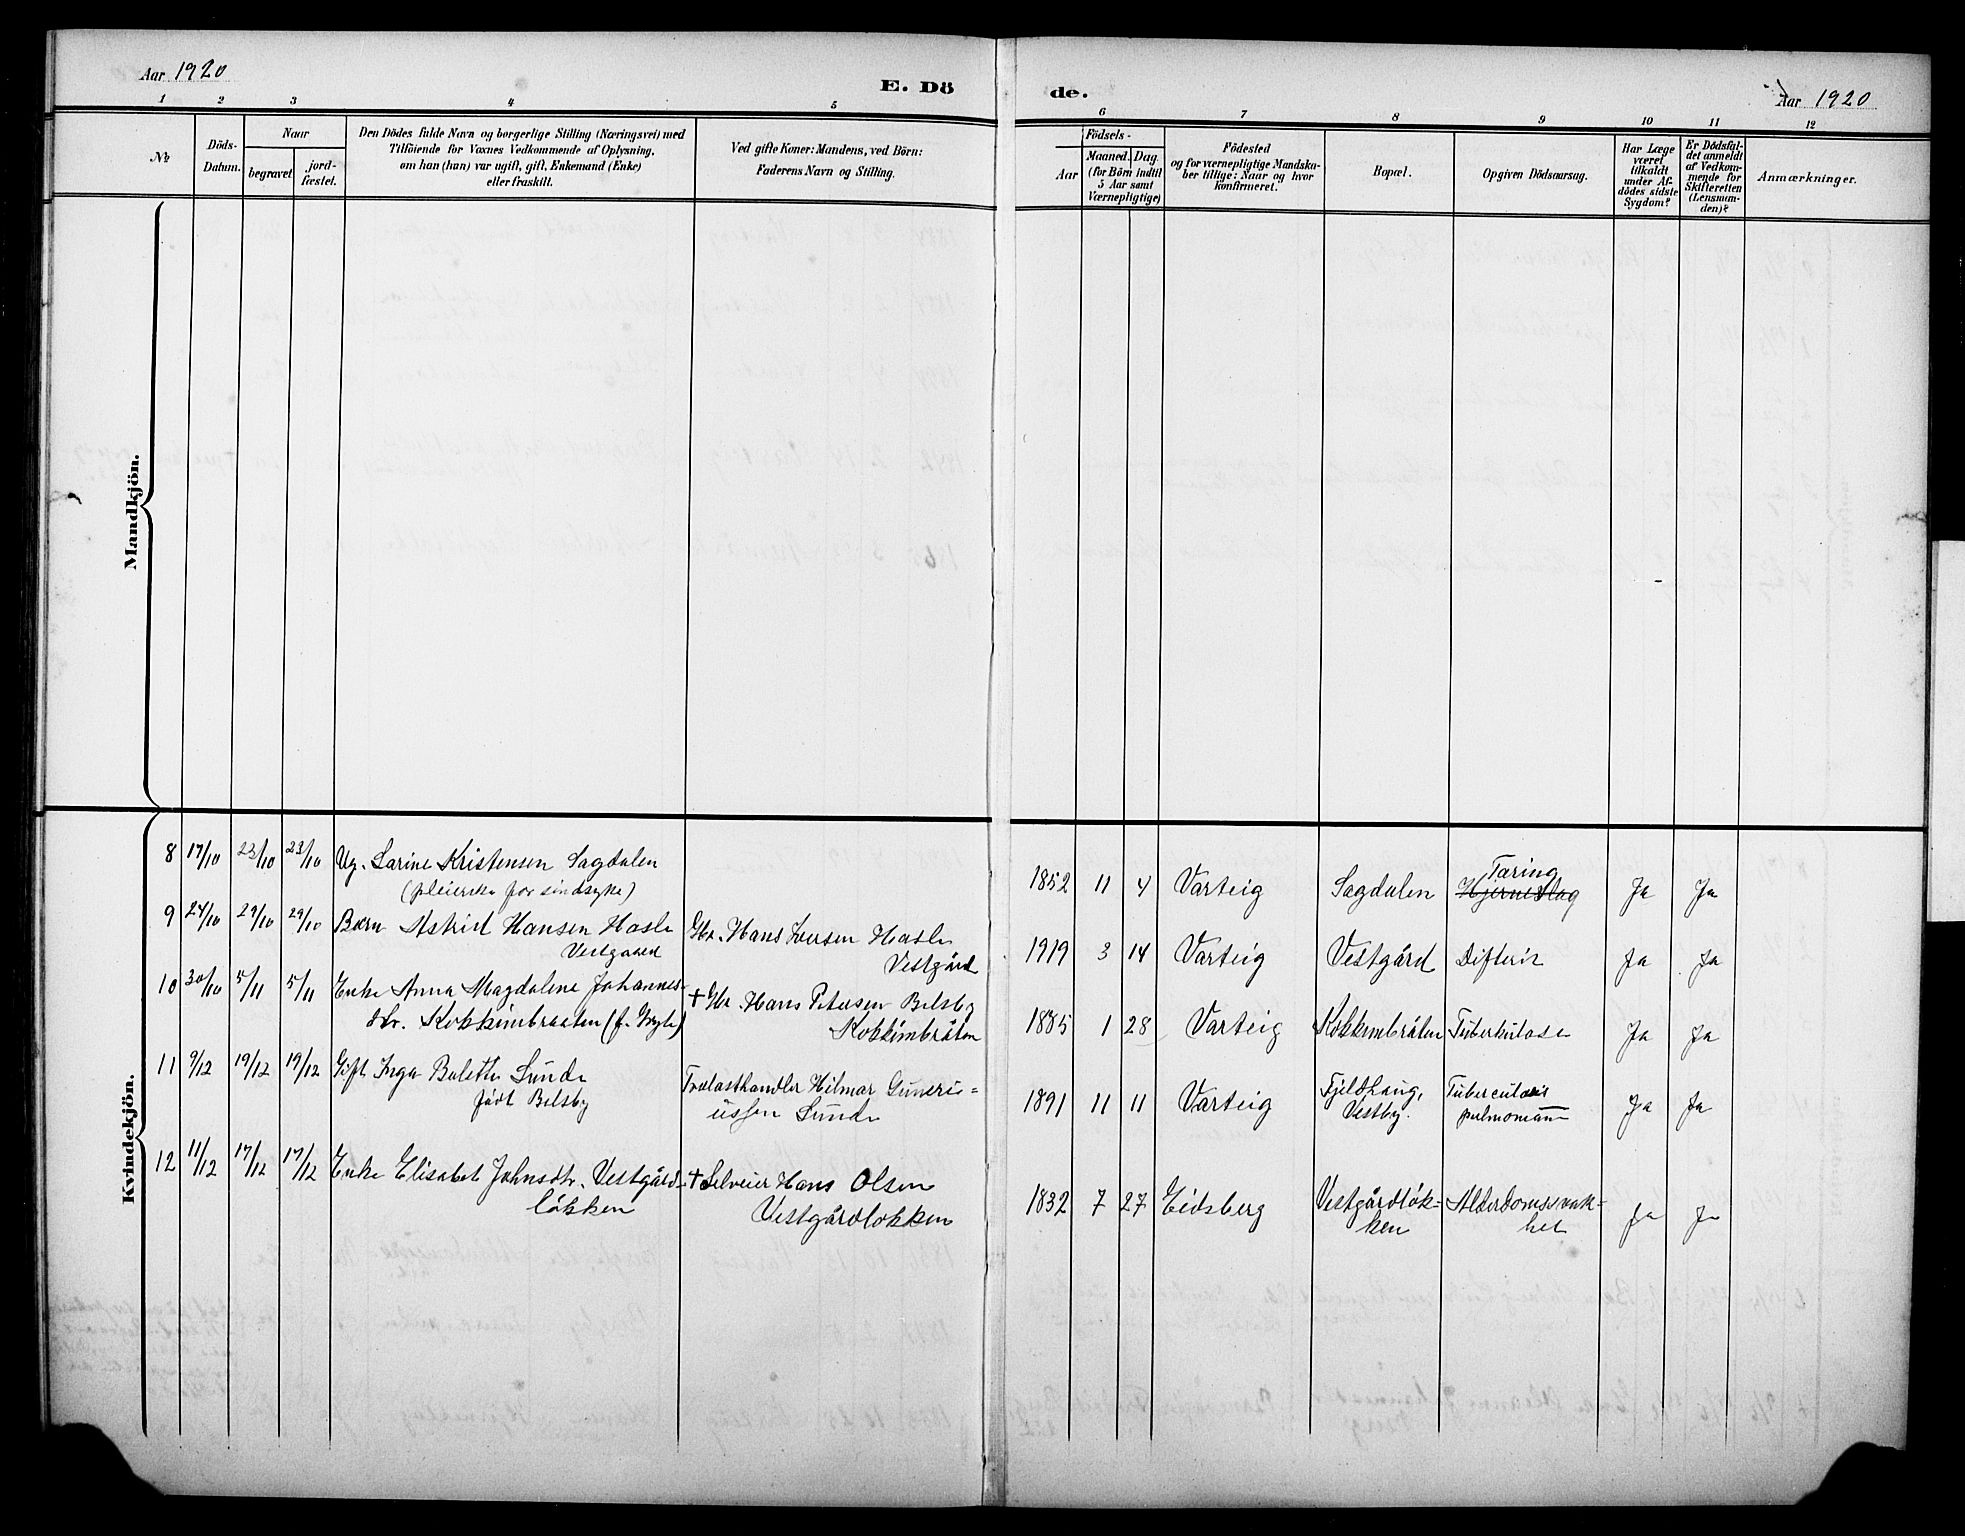 Aar 1920
E. Dö
de.
Aar 1920
1 2 3 4 5
6 7 8 9 10 11 12
No
Döds-
Datum.
Naar
begravet
jord-
fæstet.
Den Dödes fulde Navn og borgerlige Stilling (Næringsvei) med
Tilföiende for Voxnes Vedkommende af Oplysning,
om han (hun) var ugift, gift, Enkemand (Enke)
eller fraskilt.
Ved gifte Koner: Mandens, ved Börn:
Faderens Navn og Stilling.
Födsels-
Aar
Maaned. Dag.
(for Börn indtil
5 Aar samt
Værnepligtige)
Födested
og for værnepligtige Mandska-
ber tillige: Naar og hvor
konfirmeret.
Bopæl.
Opgiven Dödsaarsag.
Har Læge
været
tilkaldt
under Af-
dödes sidste
Sygdom?
Er Dödsfal-
det anmeldt
af Vedkom-
mende for
Skifteretten
(Lensman-
den)?
Anmærkninger.
Mandkjön.
Kvindekjön.
8 17/10 23/10 23/10 Ug. Sarine Kristensen Sagdalen
(pleierske for sindsyke)
1852 11 4 Varteig Sagdalen Tæring
Hjerneslag Ja Ja
9 24/10 29/10 29/10 Barn Astrid Hansen Hasle
Vestgaard
Gbr. Hans Hasle
Vestgård
1919 3 14 Varteig Vestgård Difteri Ja Ja
10 30/10 5/11 5/11 Enke Anna Magdalene Johannes-
dtr. Kokkimbraaten
+ Gbr. Hans Petersen Belsby
Kokkimbråten
1885 1 28 Varteig Kokkimbråten Tuberkulose Ja Ja
11 9/12 19/12 19/12 Gift Inga Bolette Sunde
födt Belsby
Trælasthandler Hilmar Guneri-
ussen Sunde
1891 11 11 Varteig Fjeldhaug,
Vestby. Tuberculosis
pulmonum Ja Ja
12 11/12 17/12 17/12 Enke Elisabet Johnsdtr. Vestgård-
lökken
+ Selveier Hans Olsen
Vestgårdlokken
1832 7 27 Eidsberg Vestgårdlök-
ken Alderdomssvak-
het Ja Ja